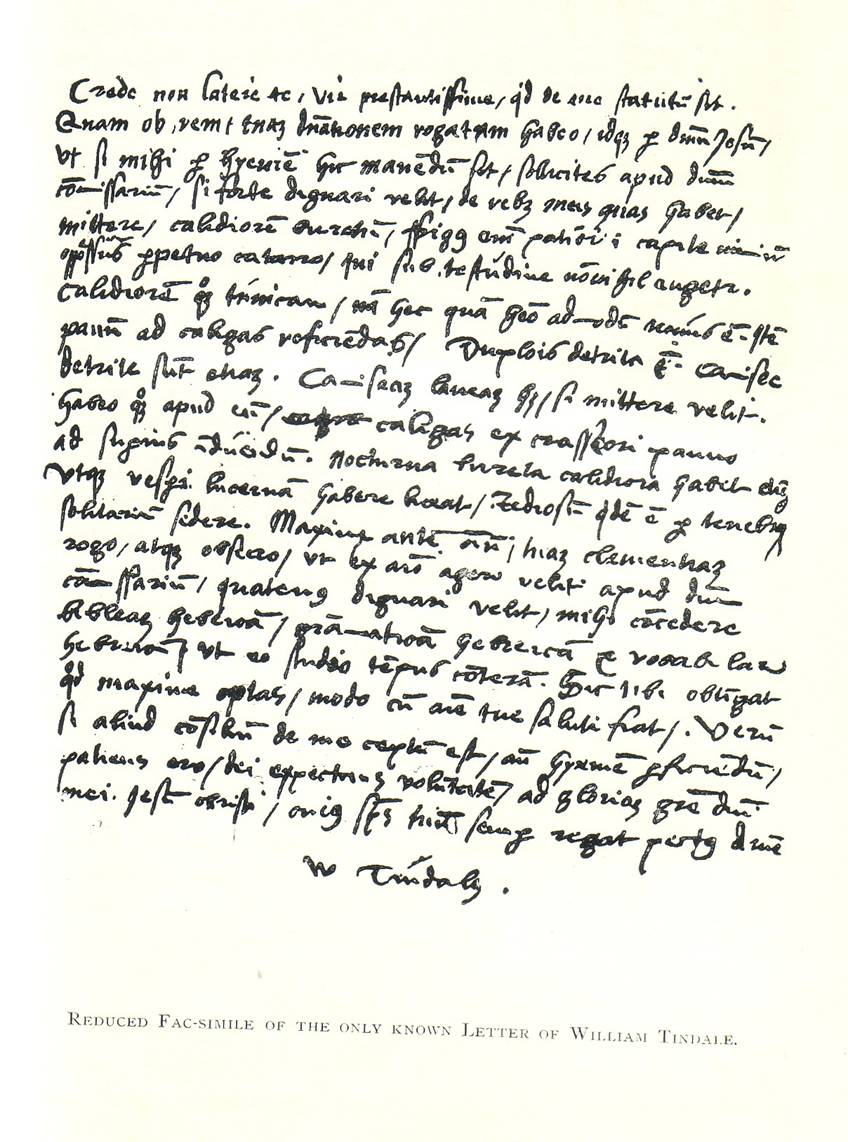 Credo non latere te, vir prestantissime, qd de me statutū sit.
Quam ob rem, tuaz dn̄ationem rogatam habeo, idqz p dnm̄ Jesū,
Vt si mihi p hyemē hic manēdū sit, sollicites apud dnm̄
cōmissariū, si forte dignari velit, de rebz meis quas habet,
mittere, calidiorē birethū, frig9 em̄ patior i capite nimiū
oppressus ppetuo catarro, qui sub testudine nōnihil augetr.
calidiorē qoz tunicam, nā hec quā heo admodū tenuis ē. Itē
pannū ad caligas reficiēdas, Duplois detrita ē. camisee
detrite sūt etiaz. Camiseaz laneaz hz, si mittere velit.
habeo qoz apud eū, caligas ex crassiori panno
ad superius īduēdū. nocturna birreta calidiora habet etiaz
Vtqz vesperi lucernā habere liceat, Tediosū qdē ē p tenebras
solitariū sedere. Maxime autē oīū, tuaz clementiaz
rogo, atqz obsecro, vt ex aīo agere velit apud dnm̄
cōmissariū, quatenus dignari velit, mihi cōcedere
bibleaz hebreā, grāmaticā hebreicā et vocabulariū
hebreicū, vt eo studio tēpus cōterā. Sic tibi obtingat
qd maxime optas, modo cū aīe tue salute fiat, Verū
si aliud cōsiliū de me ceptū est, an̄ hyemē pficiēdū,
patiens ero, dei expectans volūtatē, ad gloriaz grē dnī
mei Jesu christi, cuius sps̄ tuū semp regat pectus Amē
W Tindalus.
REDUCED FAC-SIMILE OF THE ONLY KNOWN LETTER OF WILLIAM TINDALE.